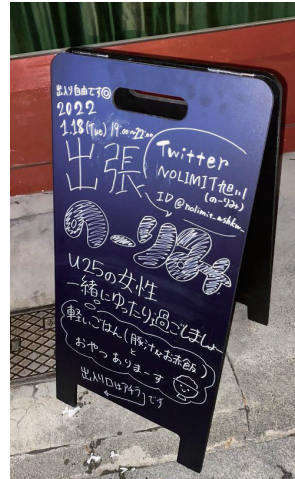 出入り自由です◎
2022
1.18(Tue) 19:00~22:00
出張
Twitter
NOLIMIT旭川
(のーりみ)
ID@nolimit_ashkw
のーりみ
U25の女性
一緒にゆったり過ごしましょ
軽いごはん(豚汁&お赤飯)
と
おやつありまーす
出入り口はアチラです
←